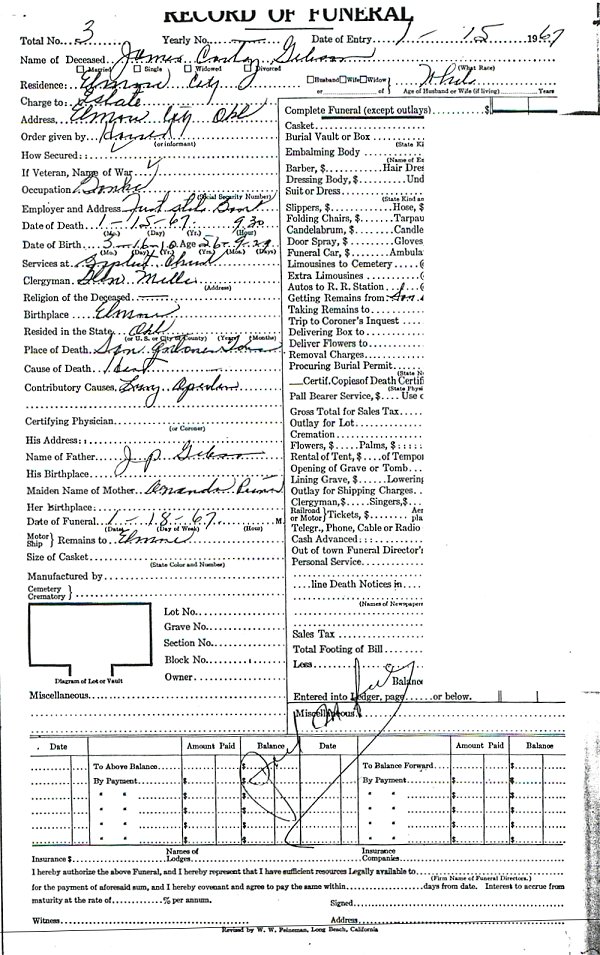 RECORD OF FUNERAL
Total No. 3 Yearly No. Date of Entry 1 - 15 1967
Name of Deceased James Gibson
Married Single Widowed Divorced (What Race)
Residence: Elmore City Husband Wife Widow White
or of Age of Husband or Wife (if living) Years
Charge to: Estate
Address Elmore City Okl
Order given by
(or informant)
How Secured:
If Veteran, Name of War
Occupation
(Social Security Number)
Employer and Address First
Date of Death 1-15-67. 9 30
(Mo.) (Day) (Yr.) (Hour)
Date of Birth 3-16-10 Age 56-9-29
(Mo.) (Day) (Yr.) (Yrs.) (Mos.) (Days)
Services at Baptist Church
Clergyman Glen Miller
(Address)
Religion of the Deceased
Birthplace Elmore
Resided in the State Okl
(or U. S. or City or County) (Years) (Months)
Place of Death
Cause of Death Heart
Contributory Causes
Certifying Physician
(or Coroner)
His Address:
Name of Father J. P. Gibson
His Birthplace
Maiden Name of Mother Amanda
Her Birthplace
Date of Funeral 1-18-67. M.
(Date) (Day of Week) (Hour)
Motor Ship } Remains to Elmore
Size of Casket
(State Color and Number)
Manufactured by
Cemetery Crematory }
Lot No.
Grave No.
Section No.
Block No.
Owner
Diagram of Lot or Vault
Miscellaneous
Complete Funeral (except outlays) $
Casket
Burial Vault or Box
(State Ki
Embalming Body
(Name of E
Barber, $ Hair Dre
Dressing Body, $ Und
Suit or Dress
(State Kind an
Slippers, $ Hose, $
Folding Chairs, $ Tarpau
Candelabrum, $ Candle
Door Spray, $ Gloves
Funeral Car, $ Ambula
Limousines to Cemetery (
Extra Limousines (
Autos to R. R. Station (
Getting Remains from:
Taking Remains to
Trip to Coroner's Inquest
Delivering Box to
Deliver Flowers to
Removal Charges
Procuring Burial Permit
(State N
Certif. Copies of Death Certifi
(State Phys
Pall Bearer Service, $ Use o
Gross Total for Sales Tax
Outlay for Lot
Cremation
Flowers, $ Palms, $
Rental of Tent, $ of Tempo
Opening of Grave or Tomb
Lining Grave, $ Lowerin
Outlay for Shipping Charges
Clergyman, $ Singers, $
Railroad or Motor } Tickets, $ Aer pla
Telegr., Phone, Cable or Radio
Cash Advanced:
Out of town Funeral Director's
Personal Service
line Death Notices in
(Names of Newspapers
Sales Tax
Total Footing of Bill
Less
Balance
Entered into Ledger, page or below.
Miscellaneous
Date Amount Paid Balance Date Amount Paid Balance
To Above Balance $ To Balance Forward $
By Payment $ $ By Payment $ $
" " $ $ " " $ $
" " $ $ " " $ $
" " $ $ " " $ $
" " $ $ " " $ $
Insurance $ Names of Lodges Insurance Companies
I hereby authorize the above Funeral, and I hereby represent that I have sufficient resources Legally available to
(Firm Name of Funeral Directors.)
for the payment of aforesaid sum, and I hereby covenant and agree to pay the same within days from date. Interest to accrue from
maturity at the rate of % per annum. Signed
Witness Address
Revised by W. W. Feineman, Long Beach, California